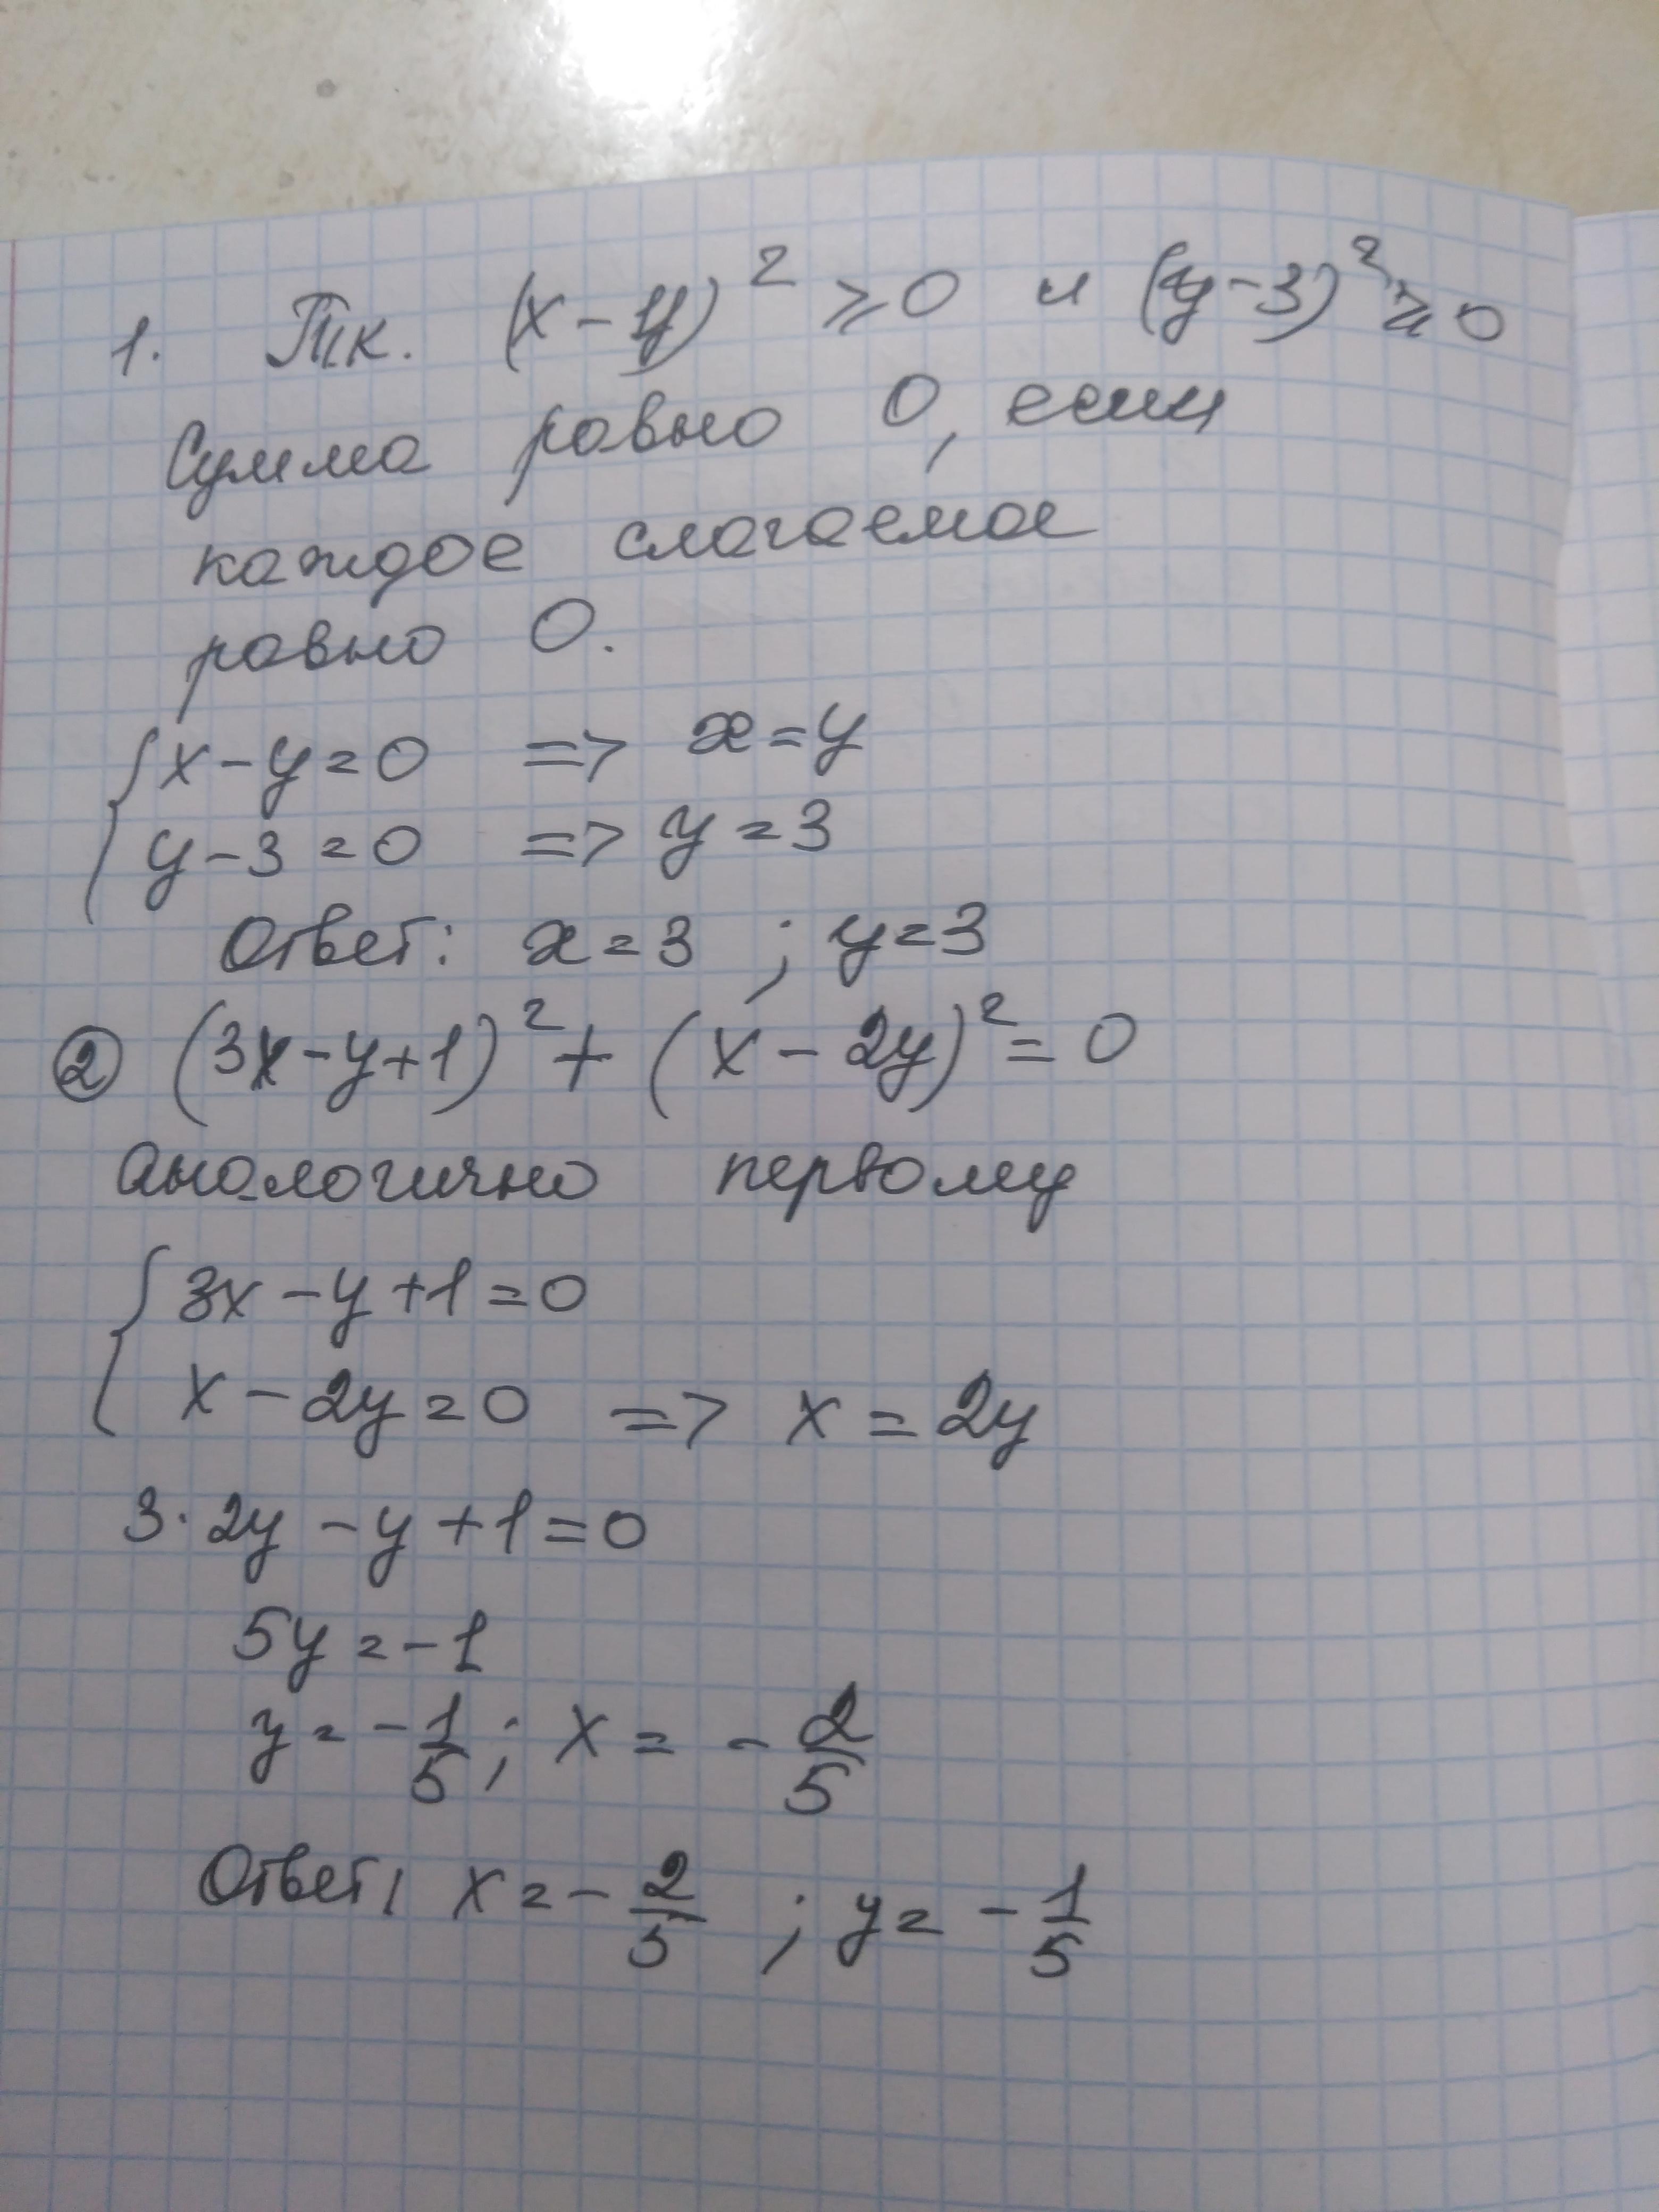 1. Т.к. (x-y)² ⩾0 и (y-3)²⩾0
Сумма равно 0, если
каждое слагаемое
равно 0.
{x-y=0 => x=y
y-3=0 => y=3
Ответ: x=3 ; y=3
② (3x-y+1)²+(x-2y)²=0
Аналогично первому
{3x-y+1=0
x-2y=0 => x=2y
3·2y-y+1=0
5y=-1
y=-1/5; x=-2/5
Ответ: x=-2/5 ; y=-1/5